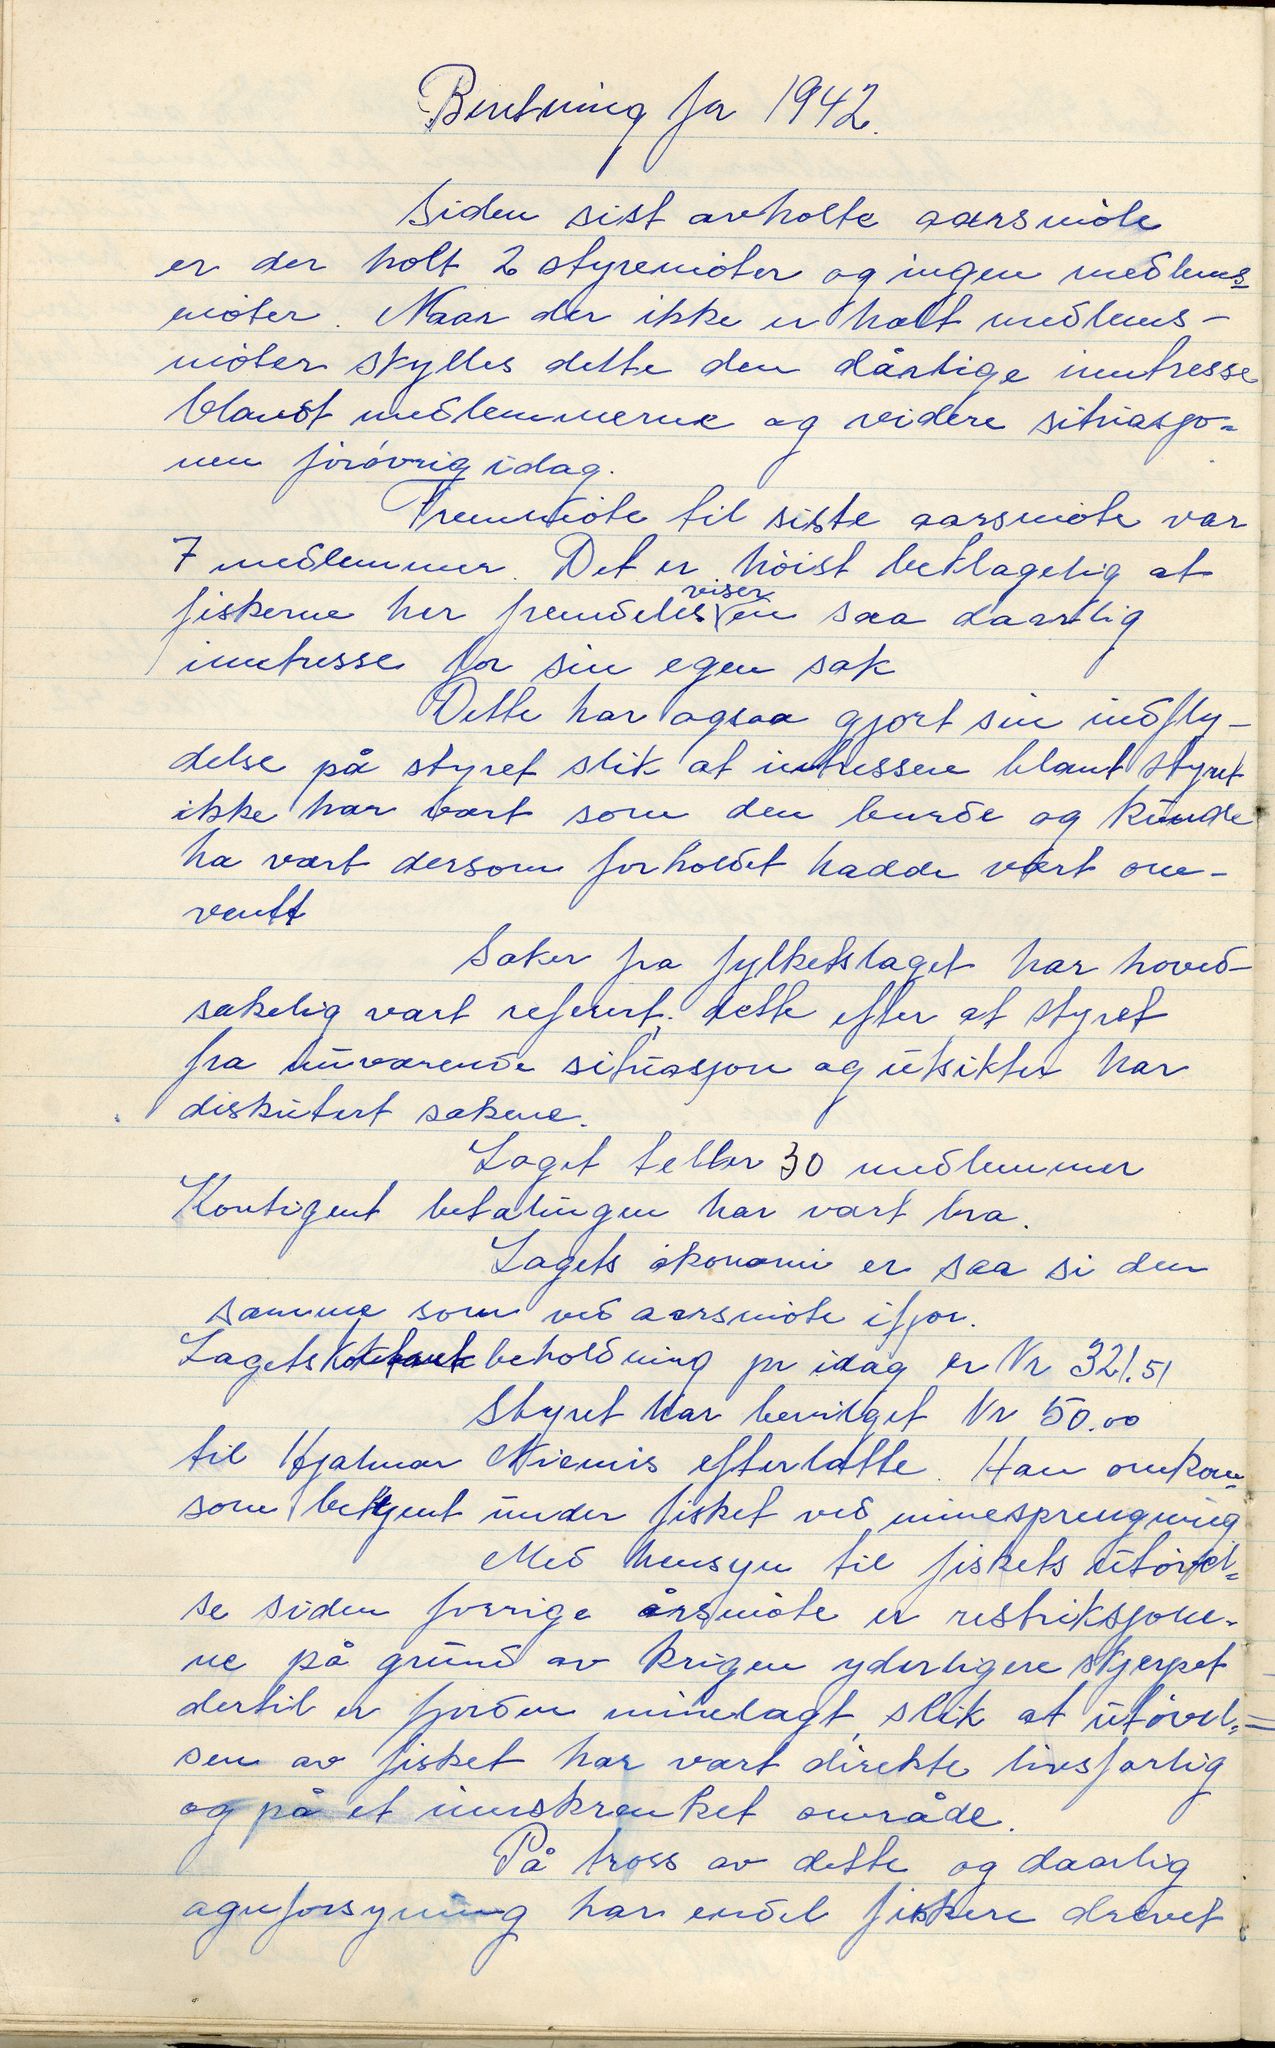 Beretning for 1942.
Siden sist avholte aarsmöte
er der holt 2 styremöter og ingen medlems-
möter. Naar der ikke er holt medlems-
möter skylles dette den dårlige inntresse
blandt medlemmerne og videre situasjo-
nen forövrig idag.
Fremmöte til siste aarsmöte var
7 medlemmer. Det er höist beklagelig at
viser
fiskerne her fremdeles en saa daarlig
inntresse for sin egen sak
Dette har ogsaa gjort sin indfly-
delse på styret slik at intressen blant styret
ikke har vært som den burde og kunde
ha vært dersom forholdet hadde vært om-
ventt
Saker fra fylketslaget har hoved-
sakelig vært referert, dette efter at styret
fra nuværende situasjon og utsikter har
diskutert sakene.
Laget teller 30 medlemmer
Kontigent betalingen har vært bra.
Lagets ökonomi er saa si den
samme som ved aarsmöte ifjor.
Lagets beholdning pr idag er Kr 321.51
Styret har bevilget Kr 50.00
til Hjalmar Niemis efterlatte. Han omkom-
som bekjent under fisket ved minesprengning
Med hensyn til fiskets utövel-
se siden forrige årsmöte er restriksjone-
ne på grund av krigen yderligere skjerpet
dertil er fjorden minelagt, slik at utövel-
sen av fisket har vært direkte livsfarlig
og på et innskrenket område.
På tross av dette og daarlig
agnforsyning har endel fiskere drevet